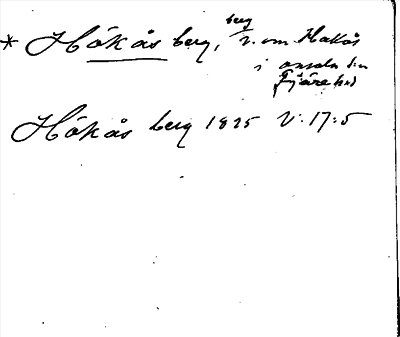 * Håkås berg, berg v. om Hakås
i Onsala sn
Fjäre hd
Håkås berg 1825 V:17:5